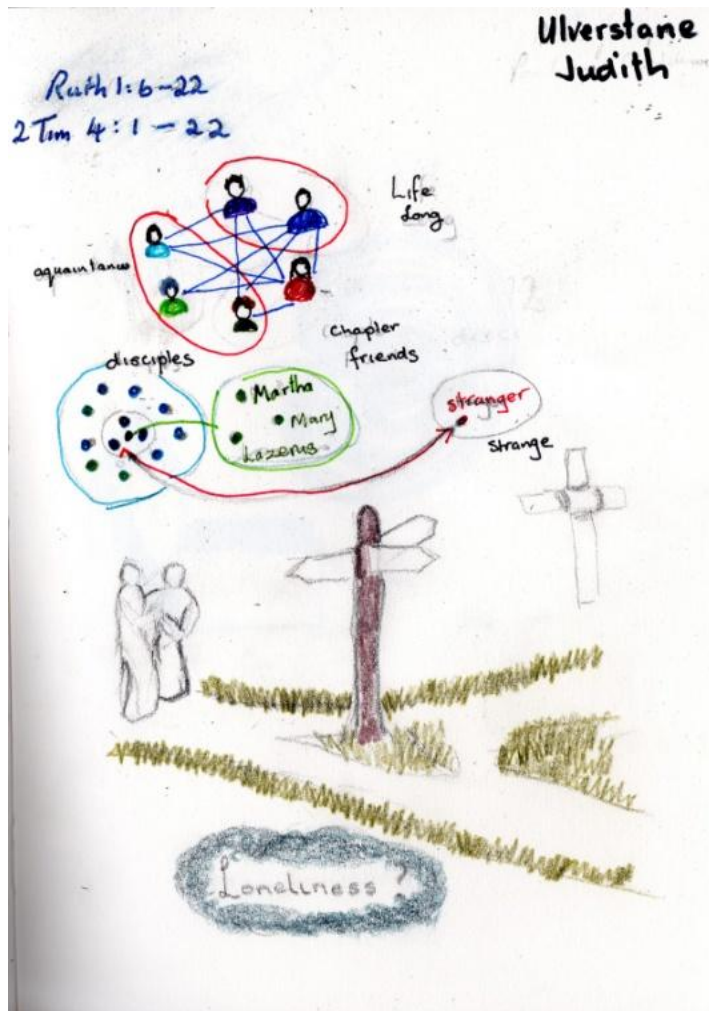 Ulverstane
Judith
Ruth 1:6-22
2 Tim 4:1-22
Life
Long
aquaintance
Chapter
friends
disciples
Martha
Mary
Lazerus
stranger
strange
Loneliness ?